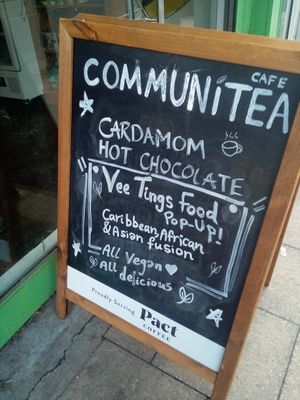 COMMUNITEA
CAFE
CARDAMOM
HOT CHOCOLATE
Vee Tings Food
POP-UP!
Caribbean, African
& Asian fusion
All Vegan
All delicious
Proudly Serving
Pact
COFFEE